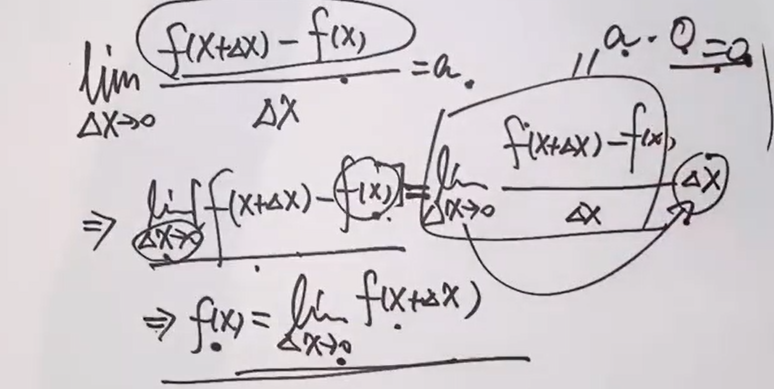 lim Δx→0 (f(x+Δx) − f(x)) / Δx = a.
a · 0 = 0
⇒ lim Δx→0 [f(x+Δx) − f(x)] = lim Δx→0 (f(x+Δx) − f(x)) / Δx · Δx
⇒ f(x) = lim Δx→0 f(x+Δx)